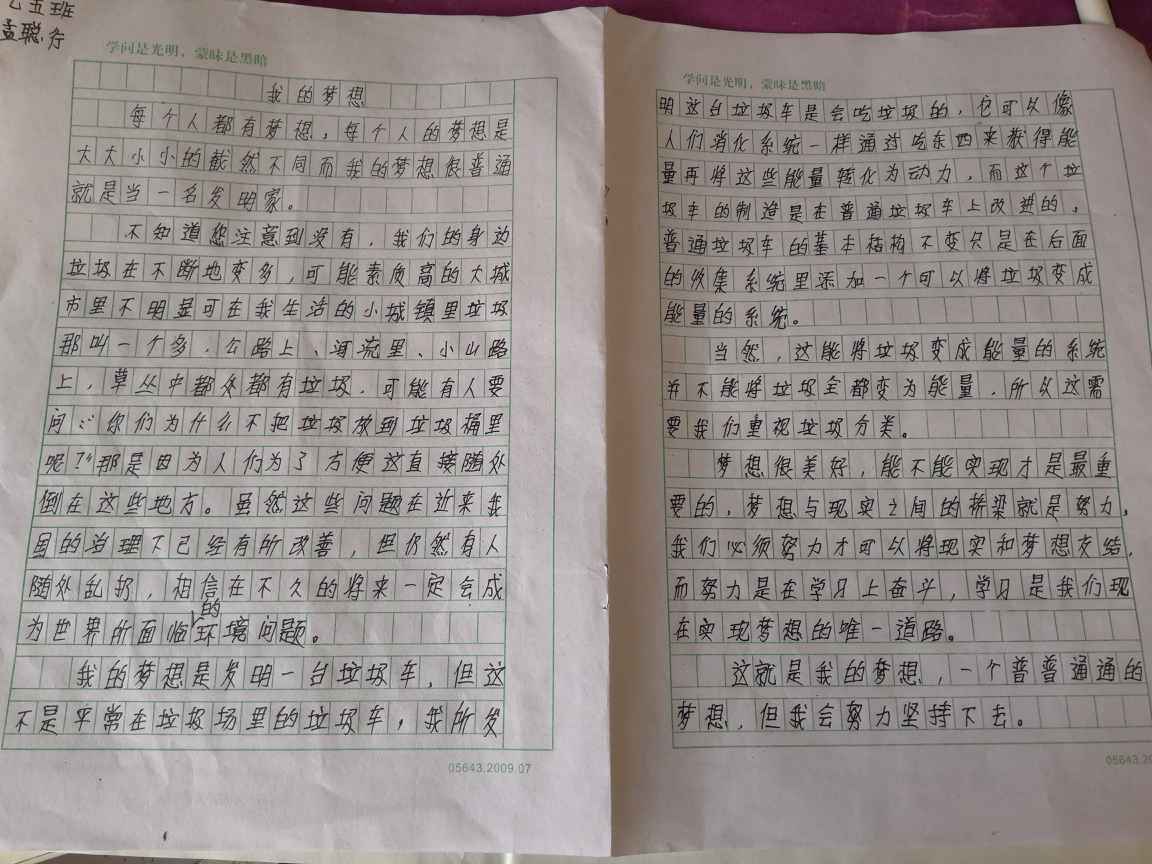 五班
孟聪行
学问是光明，蒙昧是黑暗
我的梦想
每个人都有梦想，每个人的梦想是
大大小小的截然不同而我的梦想很普通
就是当一名发明家。
不知道您注意到没有，我们的身边
垃圾在不断地变多，可能素质高的大城
市里不明显可在我生活的小城镇里垃圾
那叫一个多．公路上、河流里、小山路
上，草丛中都处都有垃圾．可能有人要
问：“你们为什么不把垃圾放到垃圾桶里
呢？”那是因为人们为了方便这直接随处
倒在这些地方。虽然这些问题在近来我
国的治理下已经有所改善，但仍然有人
随处乱扔，相信在不久的将来一定会成
为世界所面临的环境问题。
我的梦想是发明一台垃圾车，但这
不是平常在垃圾场里的垃圾车，我所发
05643.2009.07
学问是光明，蒙昧是黑暗
明这台垃圾车是会吃垃圾的，它可以像
人们消化系统一样通过吃东西来获得能
量再将这些能量转化为动力，而这个垃
圾车的制造是在普通垃圾车上改进的，
普通垃圾车的基本结构不变只是在后面
的收集系统里添加一个可以将垃圾变成
能量的系统。
当然，这能将垃圾变成能量的系统
并不能将垃圾全都变为能量，所以这需
要我们重视垃圾分类。
梦想很美好，能不能实现才是最重
要的，梦想与现实之间的桥梁就是努力，
我们必须努力才可以将现实和梦想交结，
而努力是在学习上奋斗，学习是我们现
在实现梦想的唯一道路。
这就是我的梦想，一个普普通通的
梦想，但我会努力坚持下去。